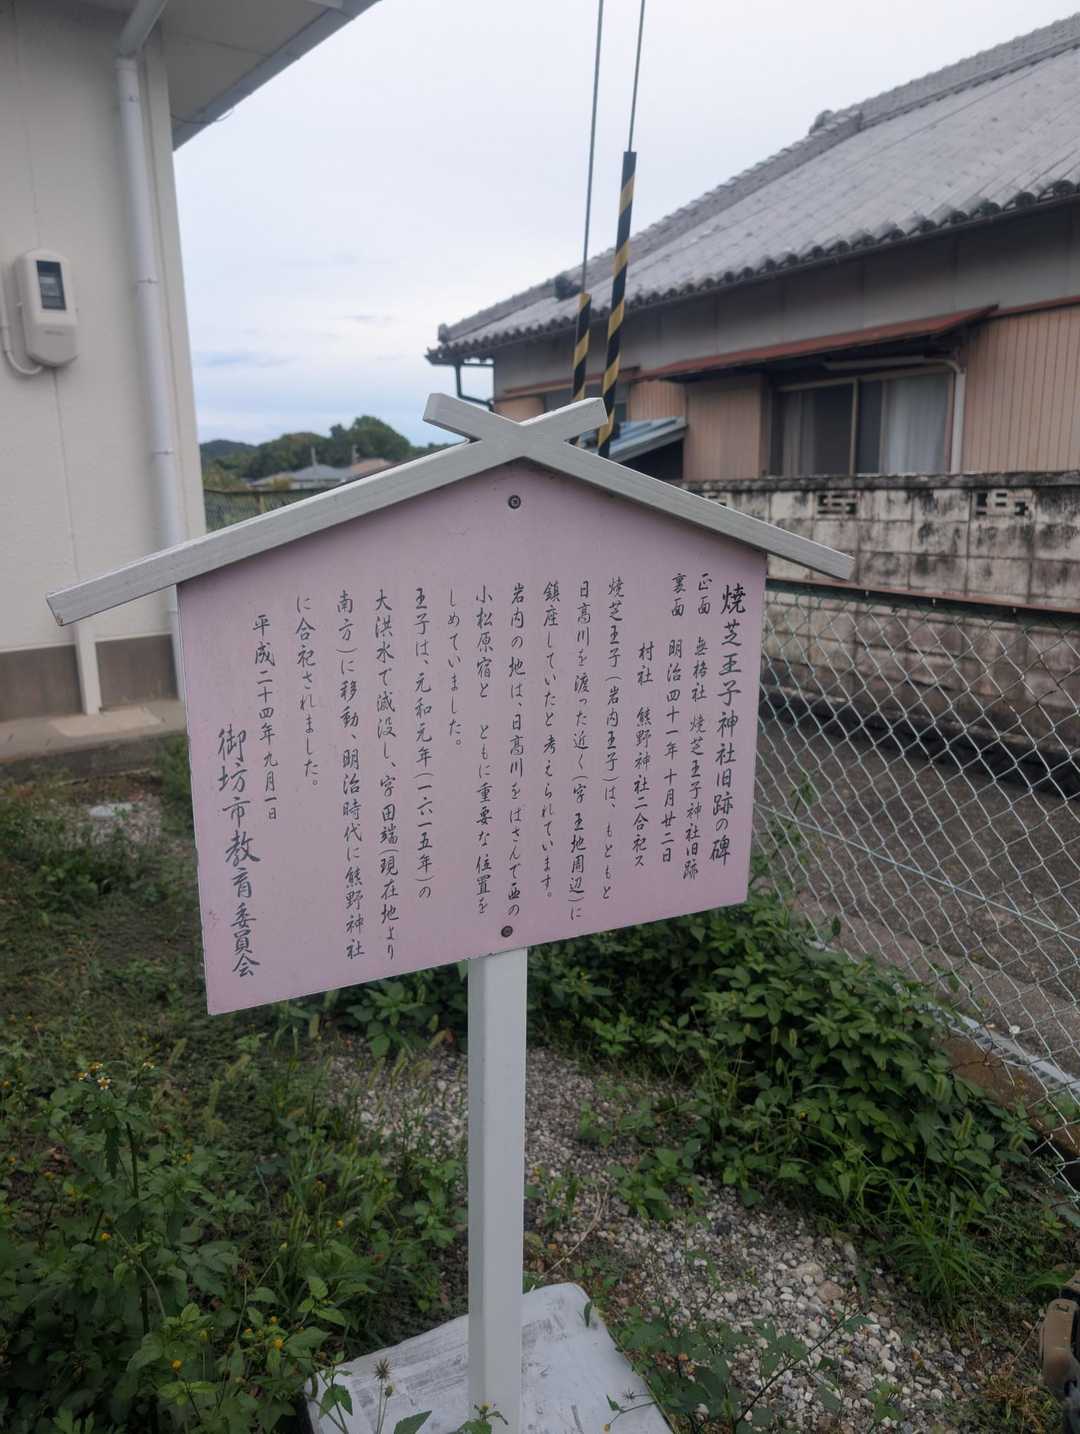 焼芝王子神社旧跡の碑
正面 無格社 焼芝王子神社旧跡
裏面 明治四十一年十月廿二日
村社 熊野神社二合祀ス
焼芝王子(岩内王子)は、もともと
日高川を渡った近く(字 王地周辺)に
鎮座していたと考えられています。
岩内の地は、日高川をはさんで西の
小松原宿と ともに重要な位置を
しめていました。
王子は、元和元年(一六一五年)の
大洪水で滅没し、字田端(現在地より
南方)に移動、明治時代に熊野神社
に合祀されました。
平成二十四年九月一日
御坊市教育委員会